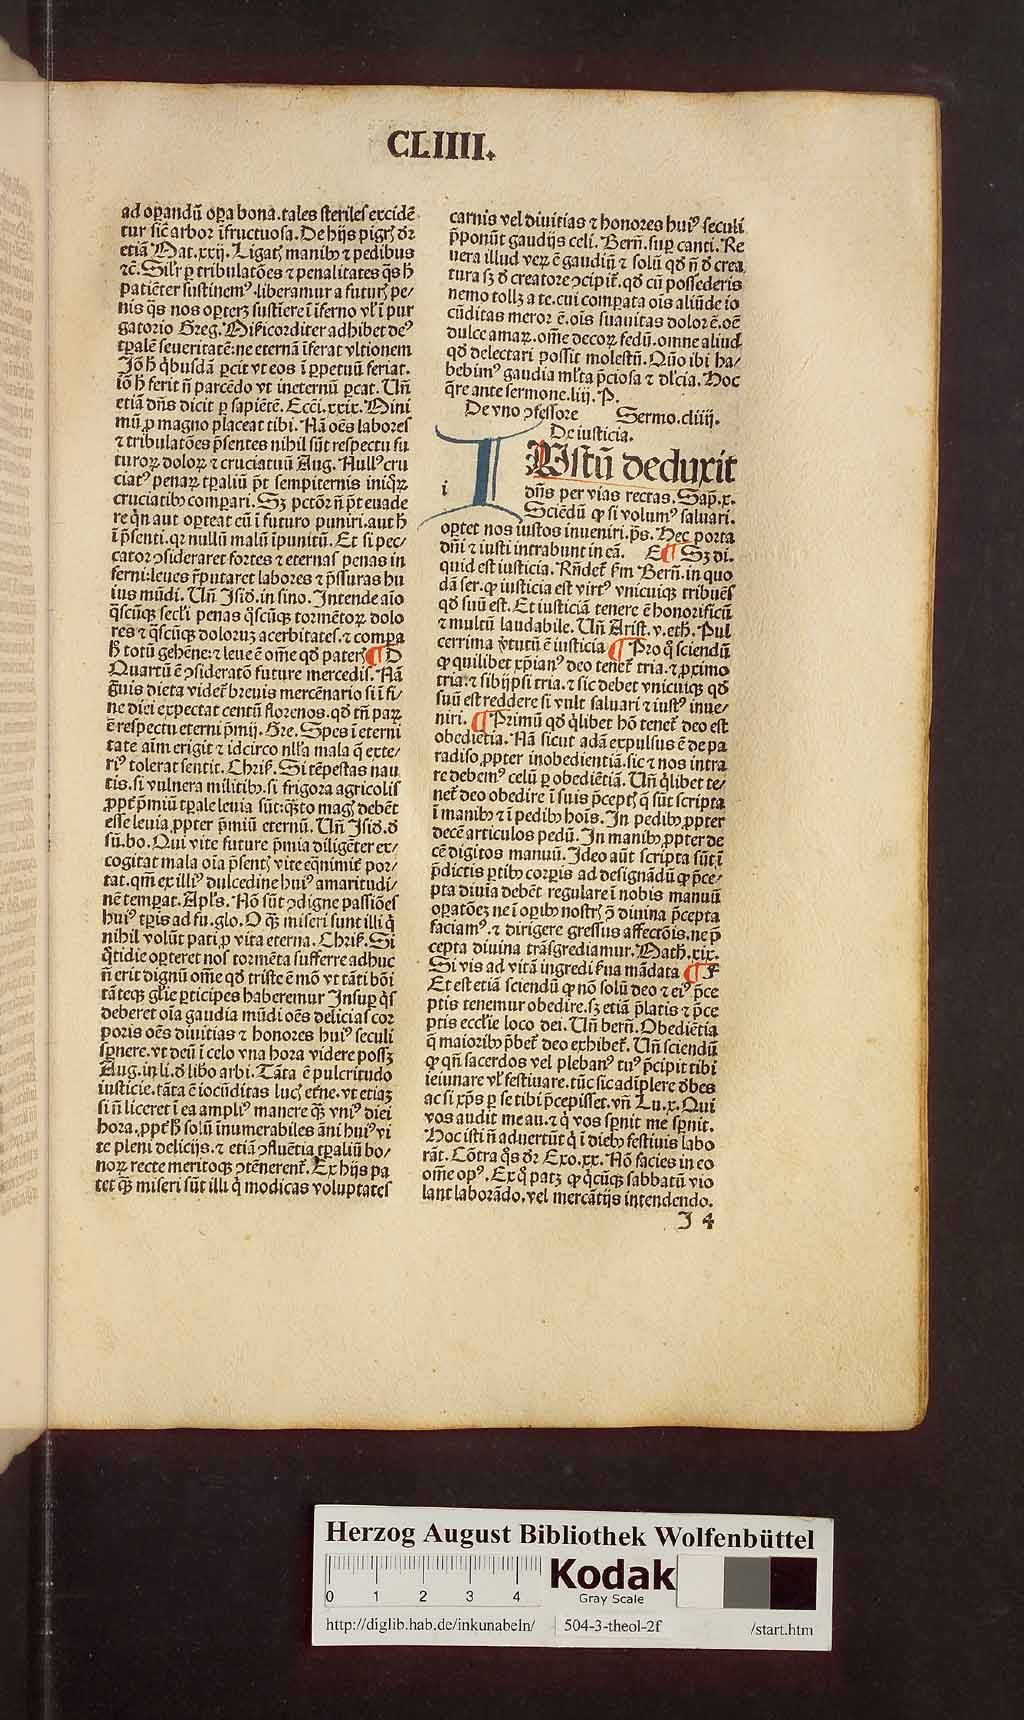 CLIIII.
ad oꝑandū oꝑa bona. tales steriles excidē
tur sic̄ arbor īfructuosa. De hijs pigr̄ꝫ dr̄
etiā Mat. xxij. Ligat̄ꝫ manibꝰ ⁊ pedibus
⁊c̄. Silr̄ ꝑ tribulatōes ⁊ penalitates qͣs h̄
patiēter sustinemꝰ. liberamur a futur̄ꝫ pe/
nis qͣs nos oꝑterꝫ sustīere ī īferno vl̓ ī pur
gatorio Greg. Mis̓icorditer adhibet deꝰ
tꝑalē seueritatē: ne eternā īferat vltionem
Jō h̄ qͥbusdā ꝑcit vt eos ī ꝑpetuū feriat.
iō h̄ ferit n̄ parcēdo vt ineternū ꝑcat. Un̄
etiā dn̄s dicit ꝑ sapiētē. Ecci. xxix. Mini
mū ꝓ magno placeat tibi. Nā oēs labores
⁊ tribulatōes p̄sentes nihil sūt respectu fu
turoꝝ doloꝝ ⁊ cruciatuū Aug. Nullꝰ cru
ciatꝰ penaꝝ tꝑaliū p̄t sempiternis iniqꝫ
cruciatibꝰ compari. Sꝫ pctōr n̄ p̄t euade
re qͥn aut oꝑteat eū ī futuro puniri. aut h̄
ī p̄senti. qꝛ nullū malū īpunitū. Et si pec/
cator ꝯsideraret fortes ⁊ eternas penas in
ferni: leues r̄putaret labores ⁊ p̄ssuras hu
ius mūdi. Un̄ Jsid̄. in sino. Intende aīo
qͣscūqꝫ secl̓i penas qͣscūqꝫ tormētoꝝ dolo
res ⁊ qͣscūqꝫ doloruꝫ acerbitates. ⁊ compa
h̄ totū gehēne: ⁊ leue ē om̄e qd̓ pater̄ꝫ ¶ D
Quartū ē ꝯsideratō future mercedis. Nā
gͣuis dieta videt̄ breuis mercēnario si ī fi/
ne diei expectat centū florenos. qd̓ tn̄ paꝝ
ē respectu eterni p̄mij. Gre. Spes ī eterni
tate aīm erigit ⁊ idcirco nlla mala q̄ exte/
riꝰ tolerat sentit. Chris̓. Si tēpestas nau
tis. si vulnera militibꝰ. si frigora agricolis
ꝓpt̄ p̄miū tꝑale leuia sūt: qͣꝫto mag̓ debēt
esse leuia ꝓpter p̄miū eternū. Un̄ Jsid̄. d̓
sū. bo. Qui vite future p̄mia diligēter ex/
cogitat mala oīa p̄sent̄ꝫ vite eqͣnimit̄ por/
tat. qm̄ ex illiꝰ dulcedine huiꝰ amaritudi/
nē temꝑat. Apl̓s. Nō sūt ꝯdigne passiōes
huiꝰ tꝑis ad fu. glo. O qͣꝫ miseri sunt illi qͥ
nihil volūt pati ꝓ vita eterna. Chris̓. Si
qͦtidie oꝑteret nos tormēta sufferre adhuc
n̄ erit dignū om̄e qd̓ triste ē mō vt tāti bōi
tāteqꝫ gl̓ie ꝑticipes haberemur Insuꝑ qͥs
deberet oīa gaudia mūdi oēs delicias cor
poris oēs diuitias ⁊ honores huiꝰ seculi
sꝑnere. vt deū ī celo vna hora videre possꝫ
Aug. in li. d̓ libo arbi. Tāta ē pulcritudo
iusticie. tāta ē iocūditas lucꝫ et̄ne. vt etiaꝫ
si n̄ liceret ī ea ampliꝰ manere qͣꝫ vniꝰ diei
hora. ꝓpt̄ h̄ solū īnumerabiles āni huiꝰ vi
te pleni delicijs. ⁊ etiā ꝯfluētia tꝑaliū bo/
noꝝ recte meritoqꝫ ꝯtēnerent̄. Ex hijs pa
tet qͣꝫ miseri sūt illi qͥ modicas voluptates
carnis vel diuitias ⁊ honores huiꝰ seculi
p̄ponūt gaudijs celi. Bern̄. suꝑ canti. Re
uera illud veꝝ ē gaudiū ⁊ solū qd̓ n̄ d̓ crea
tura sꝫ d̓ creatore ꝯcipit̄. qd̓ cū possederis
nemo tollꝫ a te. cui comꝑata oīs aliūde io
cūditas meror ē. oīs suauitas dolor ē. oē
dulce amaꝝ. om̄e decoꝝ fedū. omne aliud
qd̓ delectari possit molestū. Quō ibi ha/
bebimꝰ gaudia ml̓ta p̄ciosa ⁊ dl̓cia. Hoc
qͣre ante sermone. liij. P.
De vno ꝯfessore Sermo. cliiij.
De iusticia.
i
IUstū deduxit
dn̄s per vias rectas. Sap̄. x.
Sciēdū ꝙ si volumꝰ saluari.
oꝑtet nos iustos inueniri. p̄s. Hec porta
dn̄i ⁊ iusti intrabunt in eā. E ¶ Sꝫ di.
quid est iusticia. Rn̄det̄ s̓m Bern̄. in quo
dā ser. ꝙ iusticia est virtꝰ vnicuiqꝫ tribuēs
qd̓ suū est. Et iusticiā tenere ē honorificū
⁊ multū laudabile. Un̄ Arist. v. eth. Pul
cerrima v̓tutū ē iusticia ¶ Pro qͦ sciendū
ꝙ quilibet xp̄ianꝰ deo tenet̄ tria. ⁊ ꝓximo
tria. ⁊ sibijpsi tria. ⁊ sic debet vnicuiqꝫ qd̓
suū est reddere si vult saluari ⁊ iustꝰ inue/
niri. ¶ Primū qd̓ qͥlibet hō tenet̄ deo est
obedietia. Nā sicut adā expulsus ē de pa
radiso ꝓpter inobedientiā. sic ⁊ nos intra
re debemꝰ celū ꝑ obediētiā. Un̄ qͥlibet te/
net̄ deo obedire ī suis p̄cept̄ꝫ q̄ sūt scripta
ī manibꝰ ⁊ ī pedibꝰ hoīs. In pedibꝰ ꝓpter
decē articulos pedū. In manibꝰ ꝓpter de
cē digitos manuū. Ideo aūt scripta sūt ī
p̄dictis ꝑtibꝰ corꝑis ad designādū ꝙ p̄ce/
pta diuīa debēt regulare ī nobis manuū
oꝑatōeꝫ ne ī oꝑibꝰ nostrꝫ ꝯ̄ diuina p̄cepta
faciamꝰ. ⁊ dirigere gressus affectōis. ne p̄
cepta diuina trāsgrediamur. Math. xix.
Si vis ad vitā ingredi s̓ua mādata ¶ F
Et est etiā sciendū ꝙ nō solū deo ⁊ eiꝰ p̄ce
ptis tenemur obedire. sꝫ etiā p̄latis ⁊ p̄ce
ptis eccl̓ie loco dei. Un̄ bern̄. Obediētia
q̄ maioribꝰ p̄bet̄ deo exhibet̄. Un̄ sciendū
ꝙ qn̄ sacerdos vel plebanꝰ tuꝰ p̄cipit tibi
ieiunare vl̓ festiuare. tūc sic adīplere d̓bes
ac si xp̄s ꝑ se tibi p̄cepisset. vn̄ Lu. x. Qui
vos audit me au. ⁊ qͥ vos sꝑnit me sꝑnit.
Hoc isti n̄ aduertūt qͥ ī diebꝰ festiuis labo
rāt. Cōtra qͦs dr̄ Exo. xx. Nō facies in eo
om̄e opꝰ. Ex qͦ patꝫ ꝙ qͥcūqꝫ sabbatū vio
lant laborādo. vel mercātijs intendendo.
J 4
Herzog August Bibliothek Wolfenbüttel
0 1 2 3 4
Kodak
Gray Scale
http://diglib.hab.de/inkunabeln/ 504-3-theol-2f /start.htm